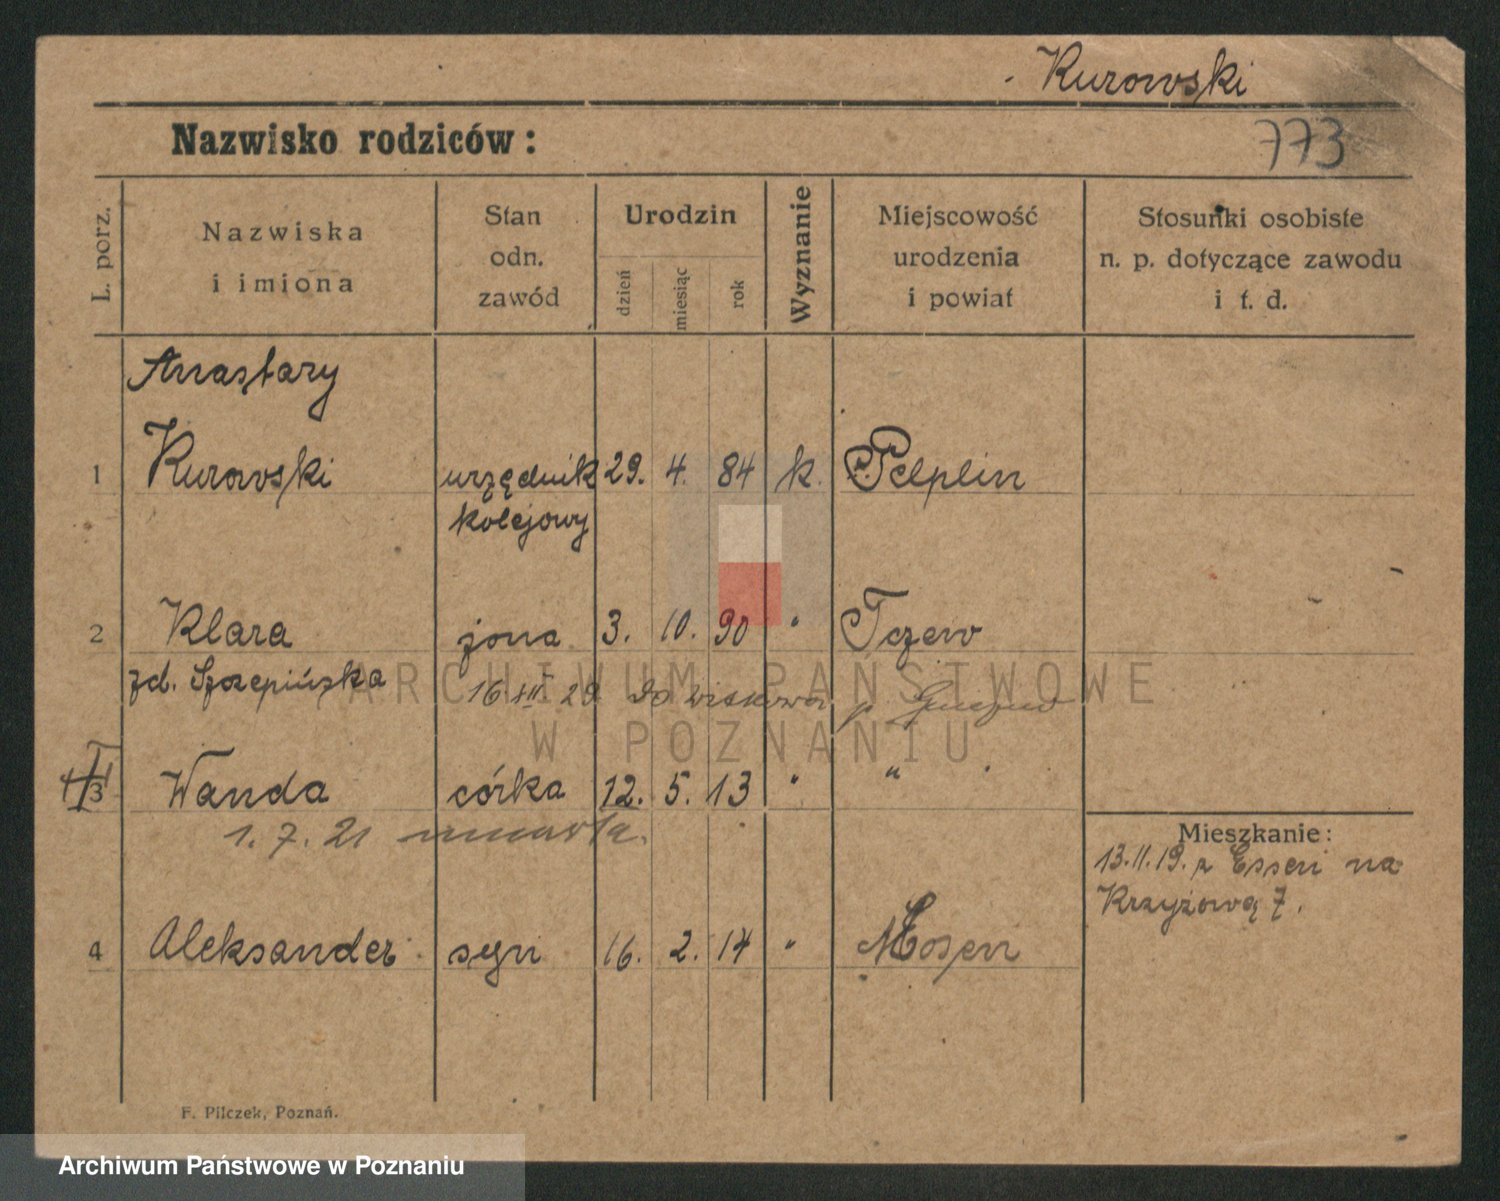 Kurowski
Nazwisko rodziców:
773
L. porz.
Nazwiska
i imiona
Stan
odn.
zawód
Urodzin
dzień
miesiąc
rok
Wyznanie
Miejscowość
urodzenia
i powiat
Stosunki osobiste
n. p. dotyczące zawodu
i t. d.
Anastazy
1 Kurowski urzędnik 29. 4. 84 k. Pelplin
kolejowy
2 Klara żona 3. 10. 90 " Tczew
zd. Szczepińska
16 XII 29 do p. Gniezno
3 Wanda córka 12. 5. 13 " "
1. 7. 21 umarła.
Mieszkanie:
13.11.19. z Essen na
Krzyżową 7.
4 Aleksander syn 16. 2. 14 "
F. Pilczek, Poznań.
ARCHIWUM PAŃSTWOWE
W POZNANIU
Archiwum Państwowe w Poznaniu